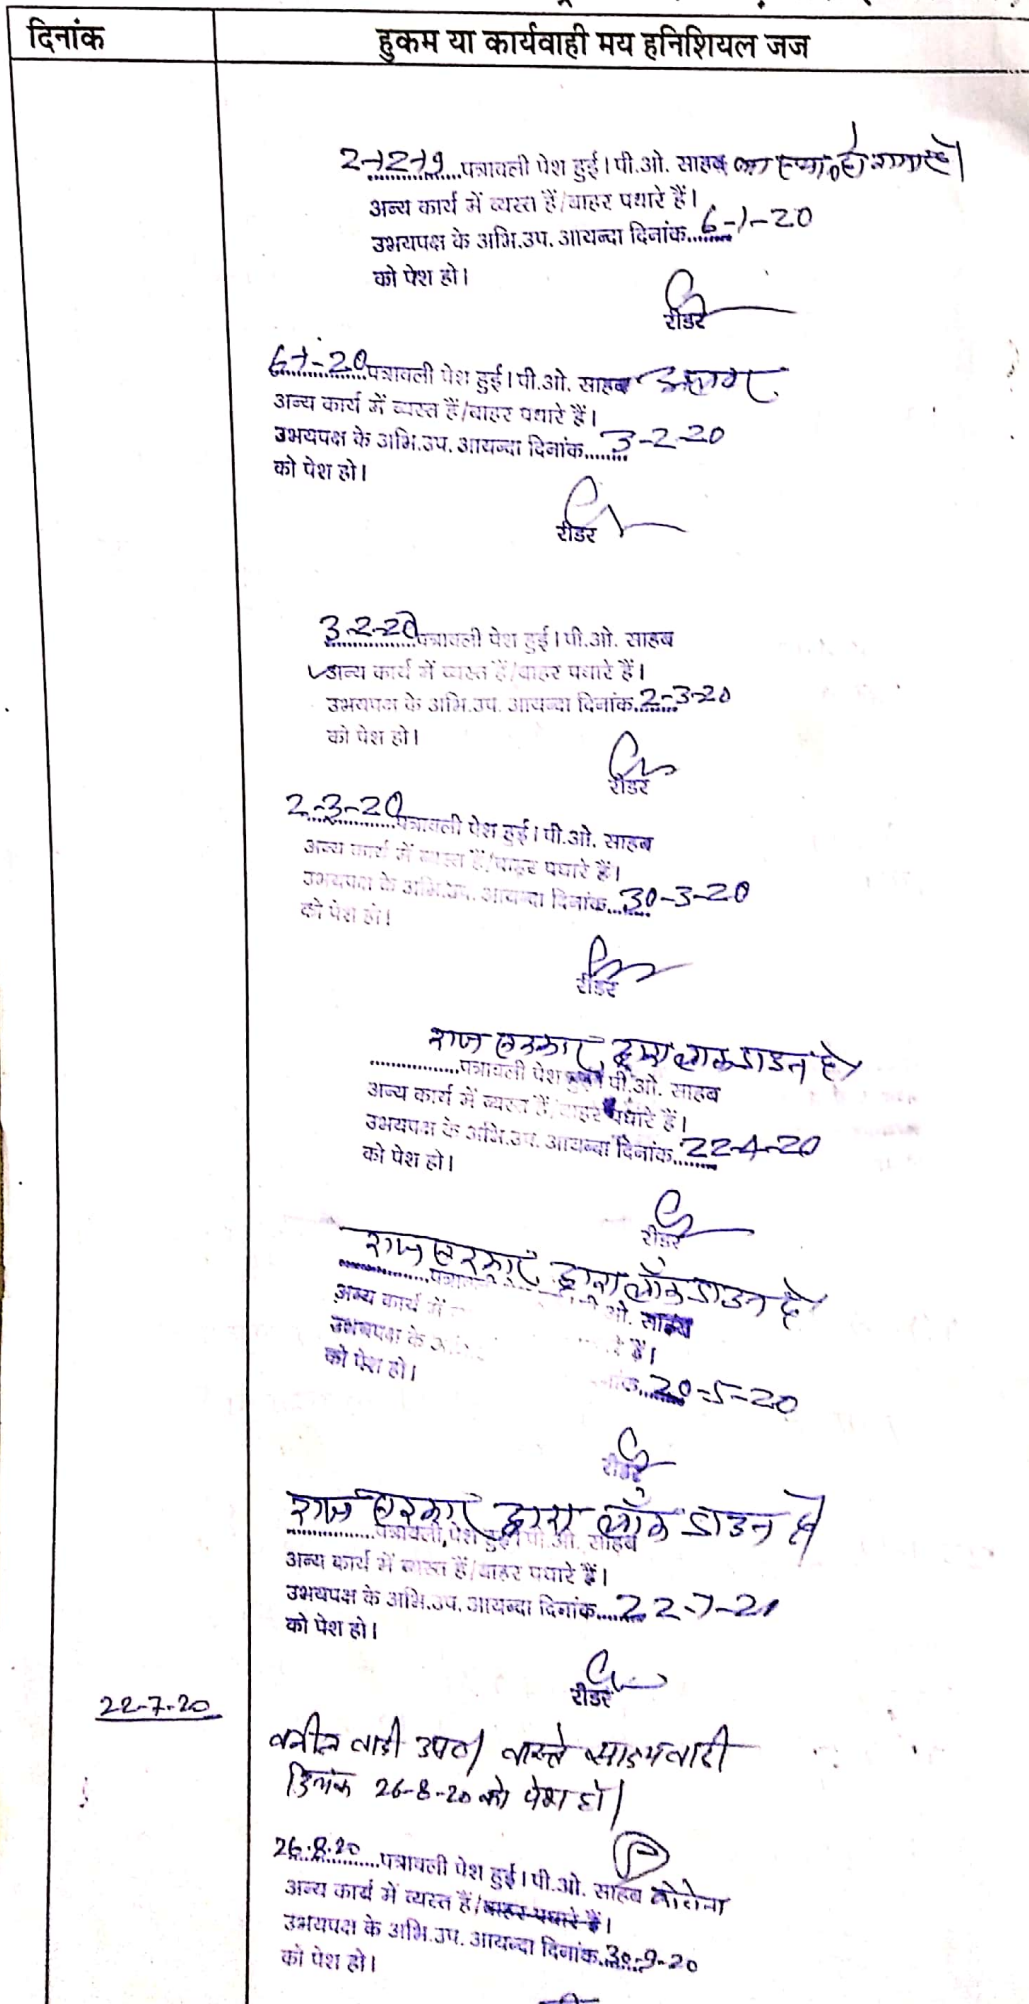 दिनांक
हुकम या कार्यवाही मय हनिशियल जज
2-12-19 पत्रावली पेश हुई। पी.ओ. साहब का स्था. हो गया है।
अन्य कार्य में व्यस्त हैं/बाहर पधारे हैं।
उभयपक्ष के अभि.उप. आयन्दा दिनांक........6-1-20
को पेश हो।
रीडर
6-1-20 पत्रावली पेश हुई। पी.ओ. साहब
अन्य कार्य में व्यस्त हैं/बाहर पधारे हैं।
उभयपक्ष के अभि.उप. आयन्दा दिनांक........3-2-20
को पेश हो।
रीडर
3-2-20 पत्रावली पेश हुई। पी.ओ. साहब
अन्य कार्य में व्यस्त हैं/बाहर पधारे हैं।
उभयपक्ष के अभि.उप. आयन्दा दिनांक........2-3-20
को पेश हो।
रीडर
2-3-20 पत्रावली पेश हुई। पी.ओ. साहब
अन्य कार्य में व्यस्त हैं/बाहर पधारे हैं।
उभयपक्ष के अभि.उप. आयन्दा दिनांक........30-3-20
को पेश हो।
रीडर
राज सरकार द्वारा लाकडाउन है
................पत्रावली पेश हुई। पी.ओ. साहब
अन्य कार्य में व्यस्त हैं/बाहर पधारे हैं।
उभयपक्ष के अभि.उप. आयन्दा दिनांक........22-4-20
को पेश हो।
रीडर
राज सरकार द्वारा लॉकडाउन है
................पत्रावली ओ. साहब
अन्य कार्य में रे हैं।
उभयपक्ष के नांक........20-5-20
को पेश हो।
रीडर
राज सरकार द्वारा लॉक डाउन है
................पत्रावली पेश हुई। पी.ओ. साहब
अन्य कार्य में व्यस्त हैं/बाहर पधारे हैं।
उभयपक्ष के अभि.उप. आयन्दा दिनांक........22-7-20
को पेश हो।
रीडर
22-7-20
वकील वादी उप०। वास्ते साक्ष्य वादी
दिनांक 26-8-20 को पेश हो।
26.8.20 पत्रावली पेश हुई। पी.ओ. साहब कोरोना
अन्य कार्य में व्यस्त हैं/बाहर पधारे हैं।
उभयपक्ष के अभि.उप. आयन्दा दिनांक........30-9-20
को पेश हो।